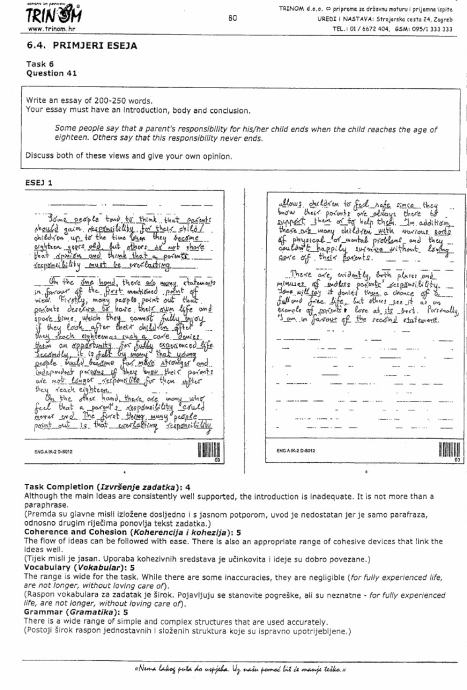 TRINOM
www.trinom.hr
80
TRINOM d.o.o. pripreme za državnu maturu i prijemne ispite
UREDI I NASTAVA: Strojarska cesta 24, Zagreb
TEL.: 01 / 6672 404, GSM: 095/1 333 333
6.4. PRIMJERI ESEJA
Task 6
Question 41
Write an essay of 200-250 words.
Your essay must have an introduction, body and conclusion.
Some people say that a parent's responsibility for his/her child ends when the child reaches the age of
eighteen. Others say that this responsibility never ends.
Discuss both of these views and give your own opinion.
ESEJ 1
Some people tend to think that parents
should gain responsibility for their child/
children up to the time when they become
eighteen years old, but others do not share
that opinion and think that a parents
responsibility must be everlasting.
On the one hand, there are many statements
in favour of the first mentioned point of
view. Firstly, many people point out that
parents deserve to have their own life and
spare time, which they cannot fully enjoy
if they look after their children after
they reach eighteen as such a care denies
them an opportunity for fully experienced life.
Secondly, it is felt by many that young
people should become far more stronger and
independent persons if they know their parents
are not longer responsible for them after
they reach eighteen.
On the other hand, there are many who
feel that a parent's responsibility should
never end. The first thing many people
point out is that everlasting responsibility
ENG A IK-2 D-S012
allows children to feel safe since they
know their parents are always there to
support them or to help them. In addition,
there are many children with various sorts
of physical or mental problems, and they
couldn't happily survive without loving
care of their parents.
There are, evidently, both pluses and
minuses of endless parents' responsibility.
Some will say it denies them a chance of a
full and free life, but others see it as an
example of parents' love at its best. Personally,
I am in favour of the second statement.
ENG A IK-2 D-S012
Task Completion (Izvršenje zadatka): 4
Although the main ideas are consistently well supported, the introduction is inadequate. It is not more than a
paraphrase.
(Premda su glavne misli izložene dosljedno i s jasnom potporom, uvod je nedostatan jer je samo parafraza,
odnosno drugim riječima ponovlja tekst zadatka.)
Coherence and Cohesion (Koherencija i kohezija): 5
The flow of ideas can be followed with ease. There is also an appropriate range of cohesive devices that link the
ideas well.
(Tijek misli je jasan. Uporaba kohezivnih sredstava je učinkovita i ideje su dobro povezane.)
Vocabulary (Vokabular): 5
The range is wide for the task. While there are some inaccuracies, they are negligible (for fully experienced life,
are not longer, without loving care of).
(Raspon vokabulara za zadatak je širok. Pojavljuju se stanovite pogreške, ali su neznatne - for fully experienced
life, are not longer, without loving care of).
Grammar (Gramatika): 5
There is a wide range of simple and complex structures that are used accurately.
(Postoji širok raspon jednostavnih i složenih struktura koje su ispravno upotrijebljene.)
«Nema lakog puta do uspjeha. Uz našu pomoć bit će manje teško.»